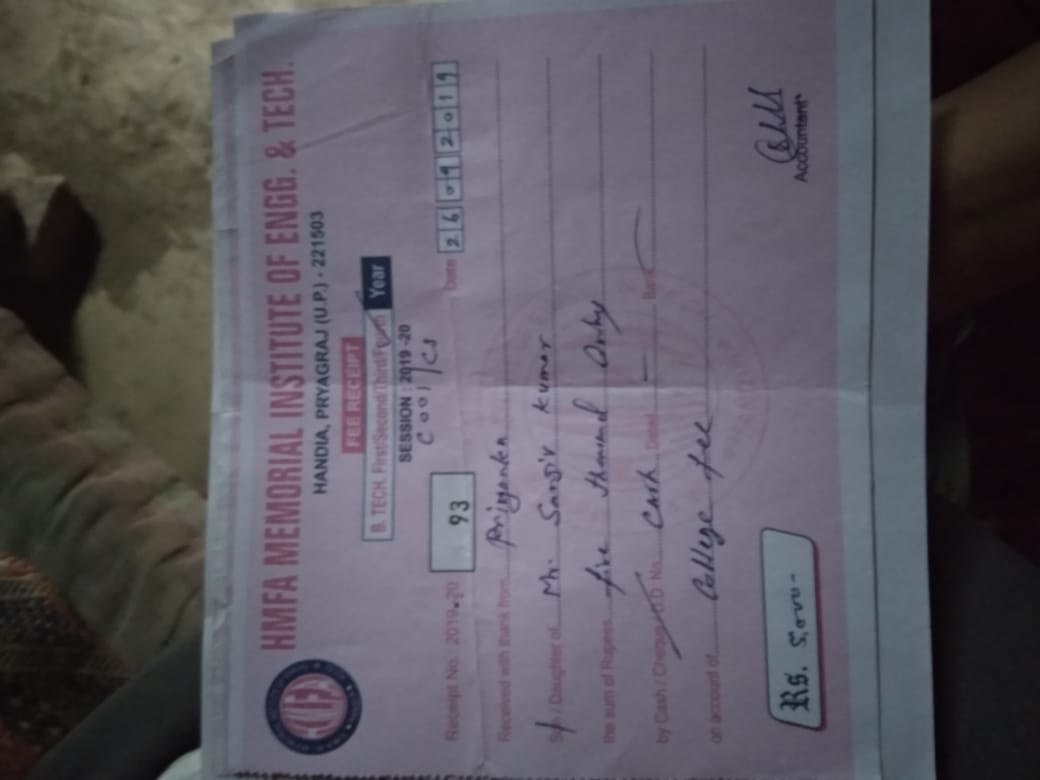 HMFA MEMORIAL INSTITUTE OF ENGG. & TECH.
HANDIA, PRYAGRAJ (U.P.) - 221503
FEE RECEIPT
B. TECH. First/Second/Third/Fourth Year
SESSION : 2019-20
Receipt No. 2019-20 93 Date 26092019
Received with thank from Priyanka
Son / Daughter of Mr. Sanjiv Kumar
the sum of Rupees five thousand Only
by Cash / Cheque / D.D. No. Cash Dated - Bank
on account of College fee
Rs. 5,000-
Accountant